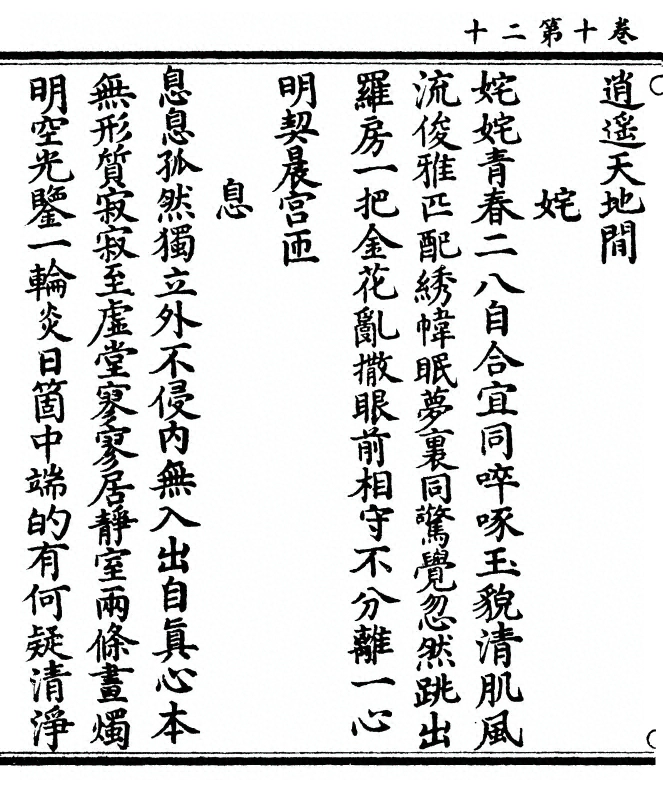 卷十第二十
逍遥天地間
姹
姹姹青春二八自合宜同啐啄玉貌清肌風
流俊雅匹配綉幃眠夢裏同驚覺忽然跳出
羅房一把金花亂撒眼前相守不分離一心
明契晨宫匝
息
息息孤然獨立外不侵内無入出自眞心本
無形質寂寂至虛堂寥寥居靜室兩條晝燭
明空光鑒一輪炎日箇中端的有何疑清淨